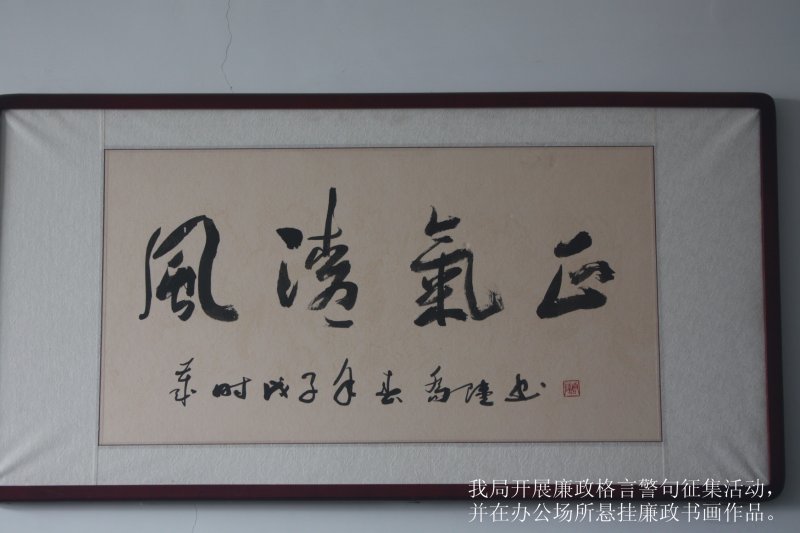 風清氣正
歲时戊子年春喬书
我局开展廉政格言警句征集活动，
并在办公场所悬挂廉政书画作品。